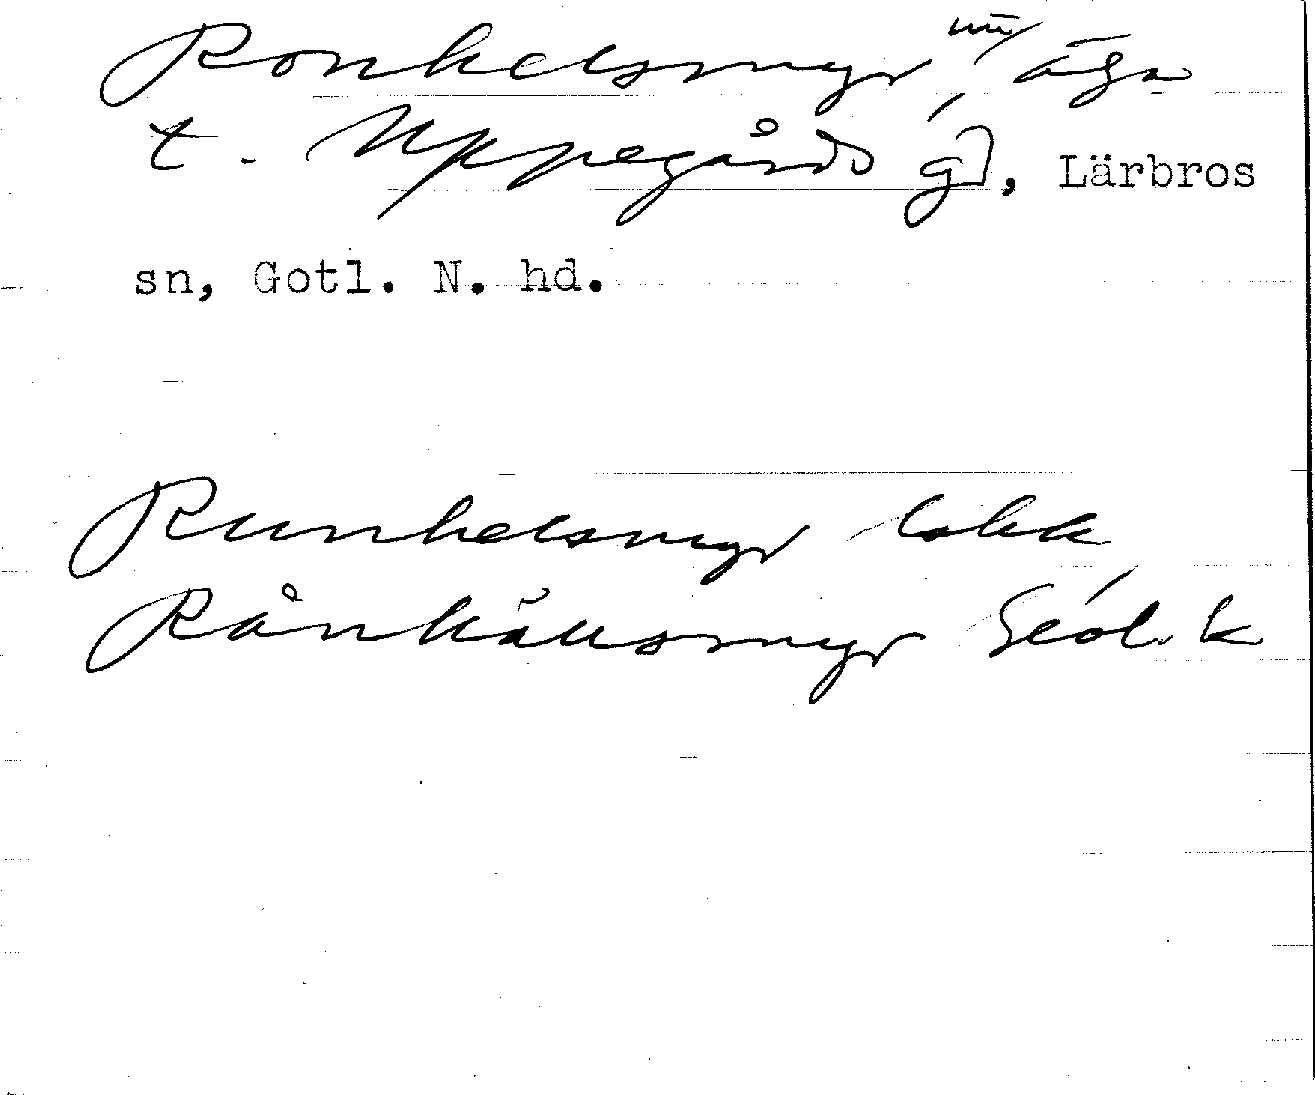 Ronhelsmyr, nu äga
t. Uppegårds gd, Lärbros
sn, Gotl. N. hd.
Runhelsmyr
Rånhällsmyr Geol. k